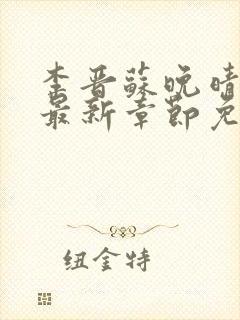 李晋苏晚晴
最新章节免
纽金特